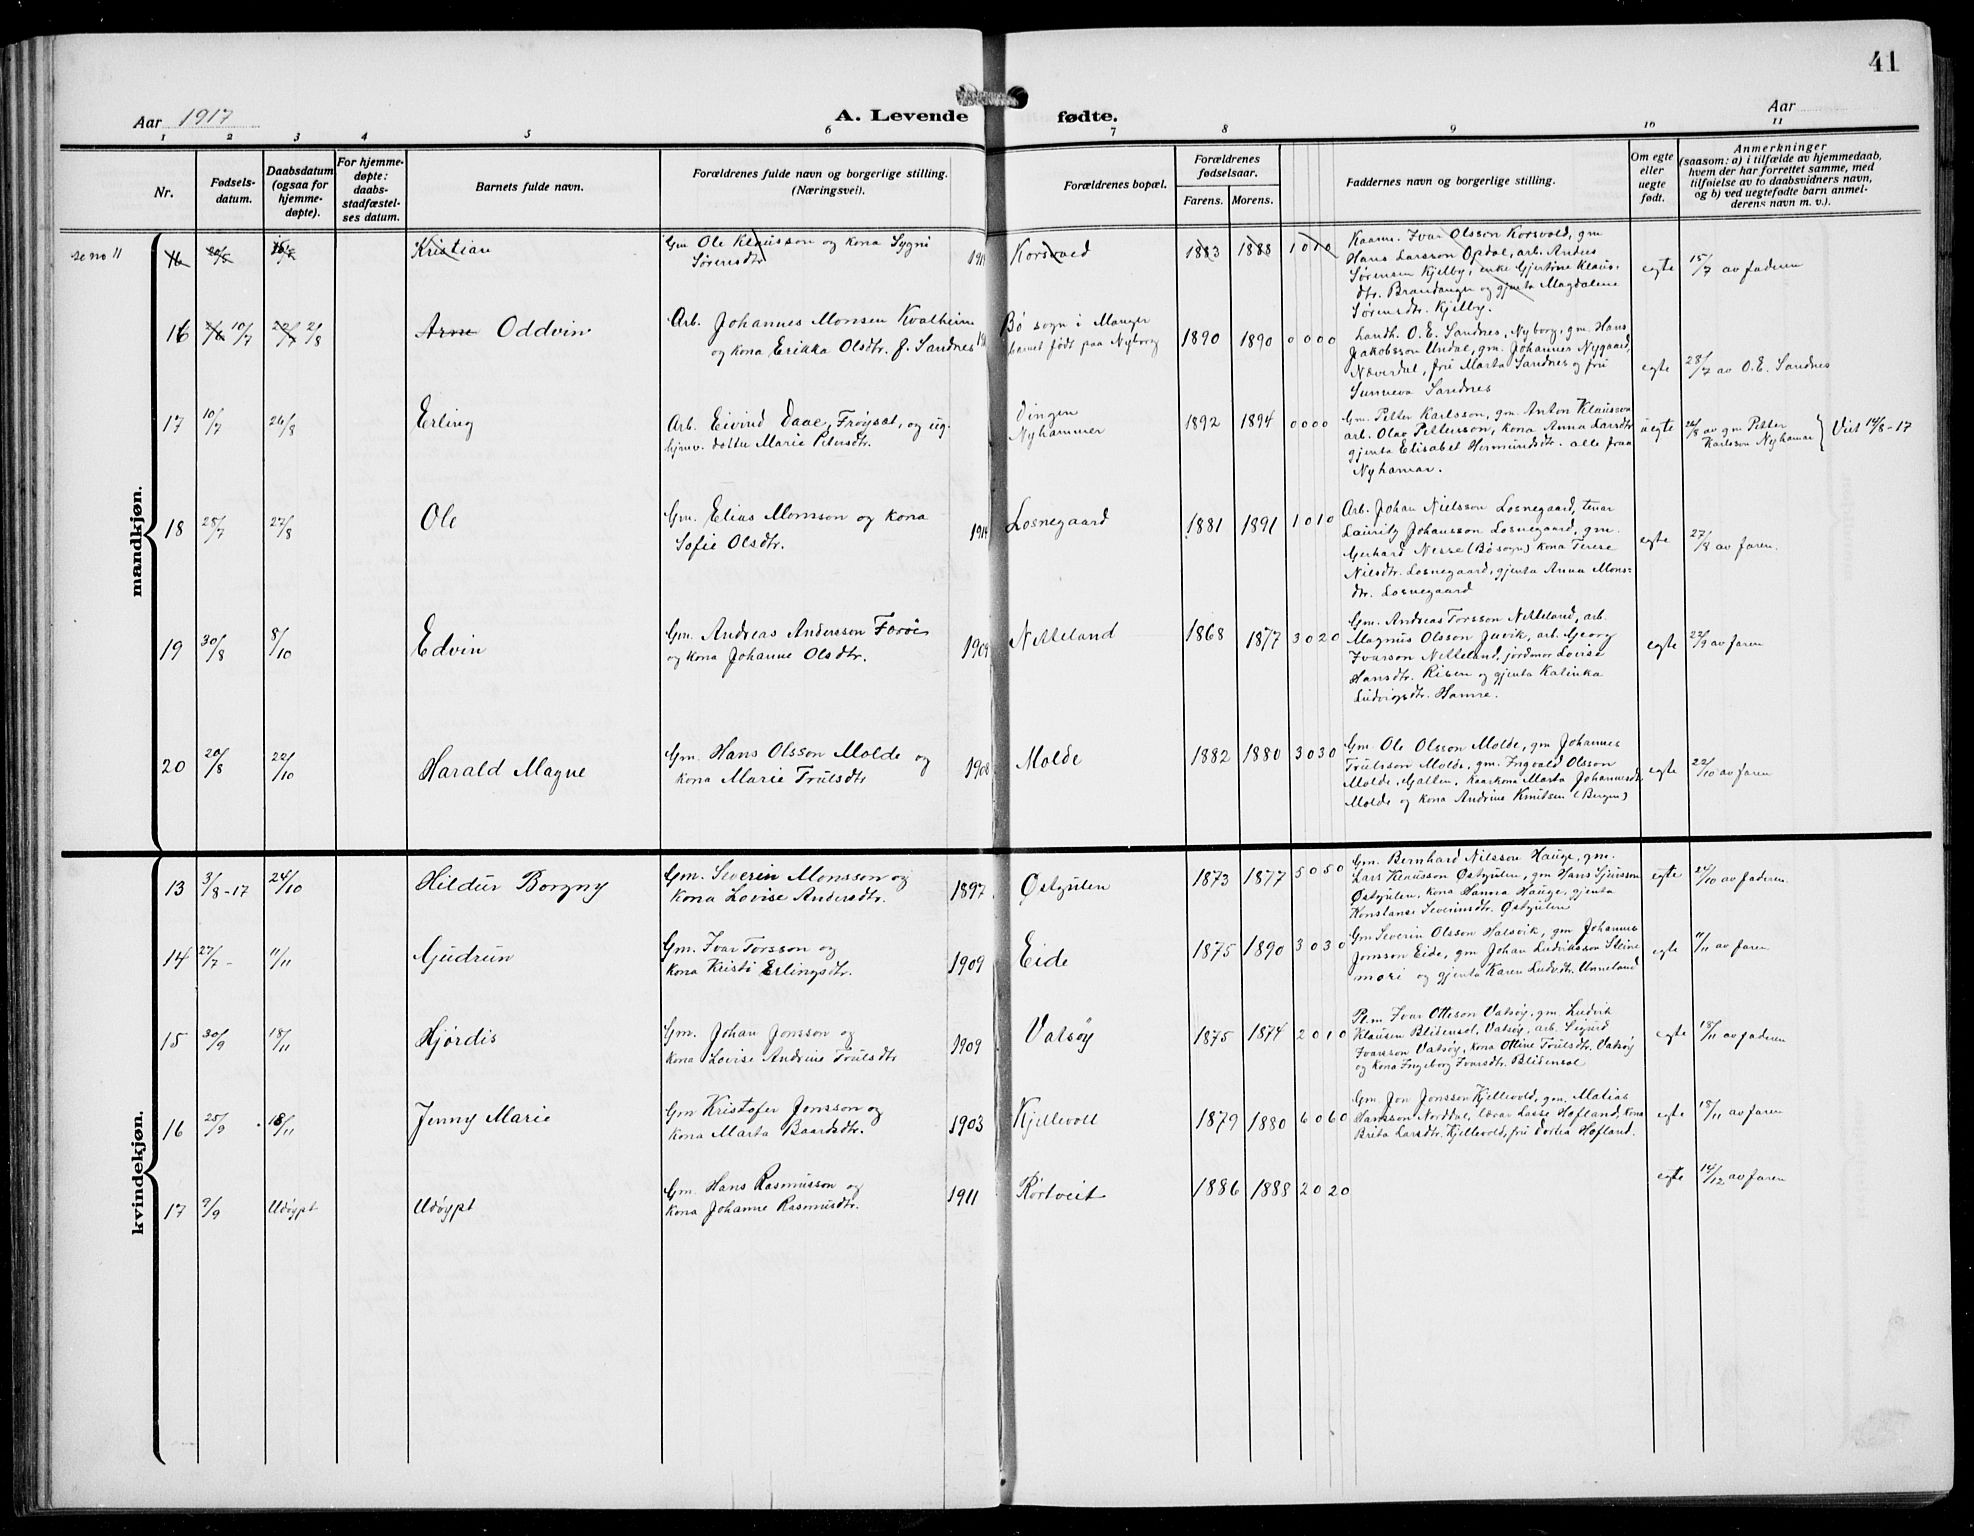 41
Aar 1917
A. Levende fødte.
Aar
1 2 3 4 5 6 7 8 9 10 11
Nr.
Fødsels-
datum.
Daabsdatum
(ogsaa for
hjemme-
døpte).
For hjemme-
døpte:
daabs-
stadfæstel-
ses datum.
Barnets fulde navn.
Forældrenes fulde navn og borgerlige stilling.
(Næringsvei).
Forældrenes bopæl.
Forældrenes
fødselsaar.
Farens. Morens.
Faddernes navn og borgerlige stilling.
Om egte
eller
uegte
født.
Anmerkninger
(saasom: a) i tilfælde av hjemmedaab,
hvem der har forrettet samme, med
tilføielse av to daabsvidners navn,
og b) ved uegtefødte barn anmel-
derens navn m. v.).
mandkjøn.
se no 11
16
Kristian
Gm. Ole Klausson og kona Sygni
Sørensdtr
Korsvold
1883 1888 1 0 1 0
Kaarm. Ivar Olsson Korsvold, gm.
Hans Larsson Opdal, arb. Anders
Sørensen Kjelby, enke Gjertine Klaus-
dtr. Brandanger og gjenta Magdalene
Sørensdtr. Kjelby.
egte
15/7 av faderen
16 10/7 21/8
Arne Oddvin
Arb. Johannes Monsen Kvalheim
og kona Erikka Olsdtr. f. Sandnes
Bø sogn i Manger
barnet født paa Nyborg
1890 1890 0 0 0 0
Landh. O. E. Sandnes, Nyborg, gm. Hans
Jakobsson Undal, gm. Johannes Nygaard,
Næverdal, fru Marta Sandnes og fru
Sunneva Sandnes
egte
28/7 av O. E. Sandnes
17 10/7 26/8
Erling
Arb. Eivind Daae, Frøyset, og ug.
hjmv. dotter Marie Petersdtr.
Vingen
Nyhammer
1892 1894 0 0 0 0
Gm. Petter Karlsson, gm. Anton Klausson
arb. Olav Pettersson, kona Anna Larsdtr
gjenta Elisabet Hermundsdtr. alle fraa
Nyhamar.
uegte
26/8 av gm Petter
Karlsson Nyhamar } Viet 14/8-17
18 28/7 27/8
Ole
Gm. Elias Monsson og kona
Sofie Olsdtr.
1914
Losnegaard
1881 1891 1 0 1 0
Arb. Johan Nielsson Losnegaard, tenar
Lauritz Johansson Losnegaard, gm.
Gerhard Nesse (Bø sogn) kona Terese
Nilsdtr. Losnegaard, gjenta Anna Mons-
dtr. Losnegaard
egte
27/8 av faren.
19 30/8 8/10
Edvin
Gm. Andreas Andersson Forøi
og kona Johanne Olsdtr.
1909
Nitteland
1868 1877 3 0 2 0
Gm. Andreas Torsson Nitteland, arb.
Magnus Olsson Juvik, arb. Georg
Ivarson Nitteland, jordmor Lovise
Hansdtr. Risen og gjenta Katinka
Ludvigsdtr. Hamre.
egte
22/9 av faren
20 20/8 22/10
Harald Magne
Gm. Hans Olsson Molde og
kona Marie Trulsdtr
1908
Molde
1882 1880 3 0 3 0
Gm. Ole Olsson Molde, gm Johannes
Trulsson Molde, gm. Ingvald Olsson
Molde, kaarkona Marta Johannesdtr
Molde og kona Andrine Knutsen (Bergen)
egte
22/10 av faren
kvindekjøn.
13 3/8-17 24/10
Hildur Borgny
Gm. Severin Monsson og
kona Lovise Andersdtr.
1897
Østgulen
1873 1877 5 0 5 0
Gm. Bernhard Nilsson Hauge, gm.
Lars Klausson Østgulen, gm Hans Sjursson
Østgulen, kona Hanna Hauge, gjenta
Konstanse Severinsdtr. Østgulen
egte
24/10 av faderen
14 27/7 - 11/11
Gudrun
Gm. Ivar Torsson og
kona Kristi Erlingsdtr.
1909
Eide
1875 1890 3 0 3 0
Gm Severin Olsson Halsvik, gm Johannes
Jonsson Eide, gm Johan Ludviksson Steine
mori og gjenta Karen Ludvdtr. Unneland
egte
11/11 av faren
15 30/9 18/11
Hjørdis
Gm. Johan Jonsson og
kona Lovise Andrine Trulsdtr
1909
Vatsøy
1875 1874 2 0 1 0
Pl.m Ivar Otteson Vatsøy, gm Ludvik
Klausen Blidensol, Vatsøy, arb. Sigurd
Ivarsson Vatsøy, kona Ottine Trulsdtr. Vatsøy
og kona Ingeborg Ivarsdtr. Blidensol
egte
18/11 av faderen
16 25/9 18/11
Jenny Marie
Gm Kristofer Jonsson og
kona Marta Baardsdtr.
1903
Kjellevolt
1879 1880 6 0 6 0
Gm. Jon Jonsson Kjellevold, gm. Matias
Hansson Norddal, lærar Lasse Hofland, kona
Brita Larsdtr. Kjellevold, fru Dortea Hofland.
egte
18/11 av faren
17 9/9 Udøypt
Udøypt
Gm. Hans Rasmusson og
kona Johanne Rasmusdtr.
1911
Rortveit
1886 1888 2 0 2 0
egte
14/12 av faren